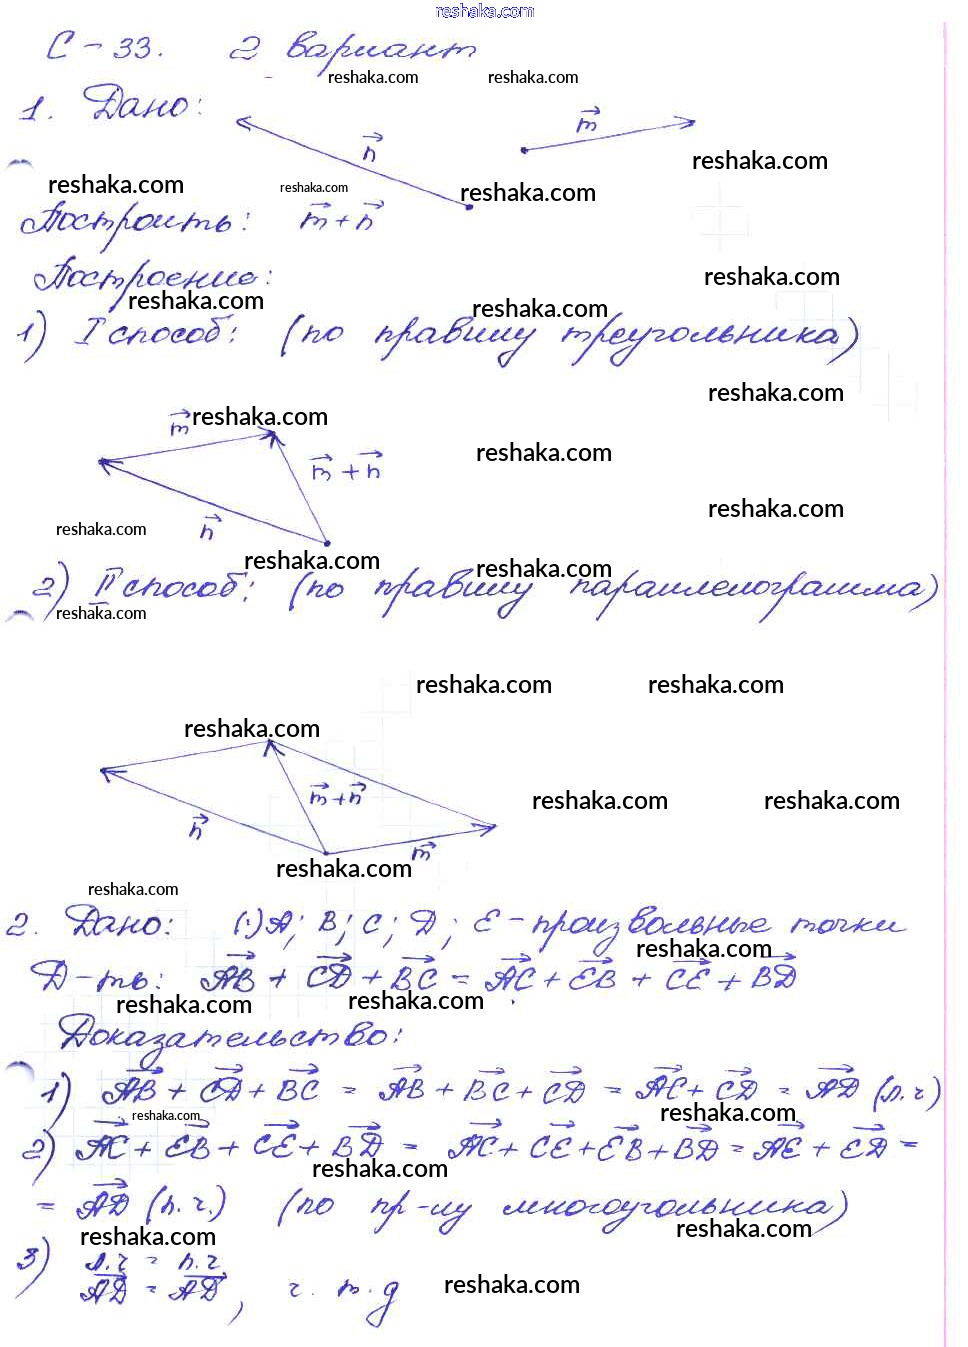 reshaka.com
С-33. 2 вариант
reshaka.com reshaka.com
1. Дано:
n m
reshaka.com
reshaka.com reshaka.com reshaka.com
Построить: m + n
Построение:
reshaka.com
reshaka.com reshaka.com
1) I способ: (по правилу треугольника)
reshaka.com
m reshaka.com
reshaka.com
m + n
reshaka.com
reshaka.com n
reshaka.com reshaka.com
2) II способ: (по правилу параллелограмма)
reshaka.com
reshaka.com reshaka.com
reshaka.com
m + n
reshaka.com reshaka.com
n m
reshaka.com
reshaka.com
2. Дано: (·)A; B; C; D; E - произвольные точки
reshaka.com
Д-ть: AB + CD + BC = AC + EB + CE + BD
reshaka.com reshaka.com
Доказательство:
1) AB + CD + BC = AB + BC + CD = AC + CD = AD (л.ч)
reshaka.com reshaka.com
2) AC + EB + CE + BD = AC + CE + EB + BD = AE + ED =
reshaka.com
= AD (п.ч.) (по пр-лу многоугольника)
reshaka.com reshaka.com
3) л.ч = п.ч
AD = AD, ч.т.д
reshaka.com